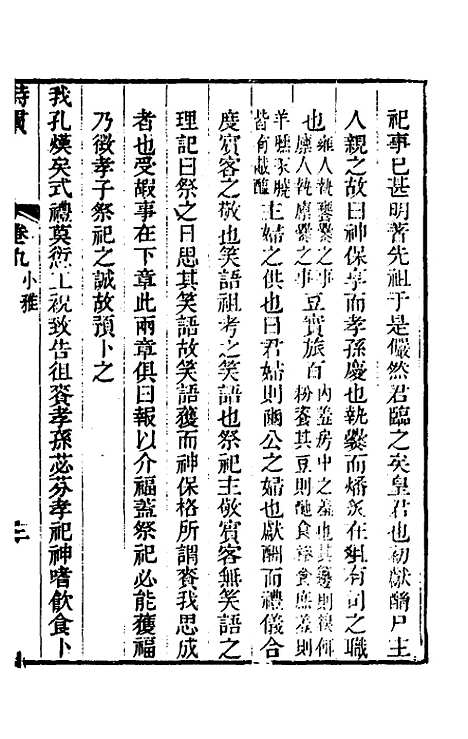 祀事巳甚明著先祖于是儼然君臨之矣皇君也初獻酳尸主
人親之故曰神保享而孝孫慶也執爨而燔炙在俎有司之職
也雍人執饔爨之事廩人執廪爨之事豆實旅百內羞房中之羞也其籩則糗何粉餈其豆則酏食糝食庶羞則
羊臐豕膮皆有胾醢主婦之供也曰君婦則閟公之婦也獻酬而禮儀合
度賓客之敬也笑語祖考之笑語也祭祀主敬賓客無笑語之
理記曰祭之日思其笑語故笑語獲而神保格所謂賚我思成
者也受嘏事在下章此兩章俱曰報以介福蓋祭祀必能獲福
乃徵孝子祭祀之誠故預卜之
我孔熯矣式禮莫愆工祝致告徂賚孝孫苾芬孝祀神嗜飲食卜
詩貫
卷九 小雅
三